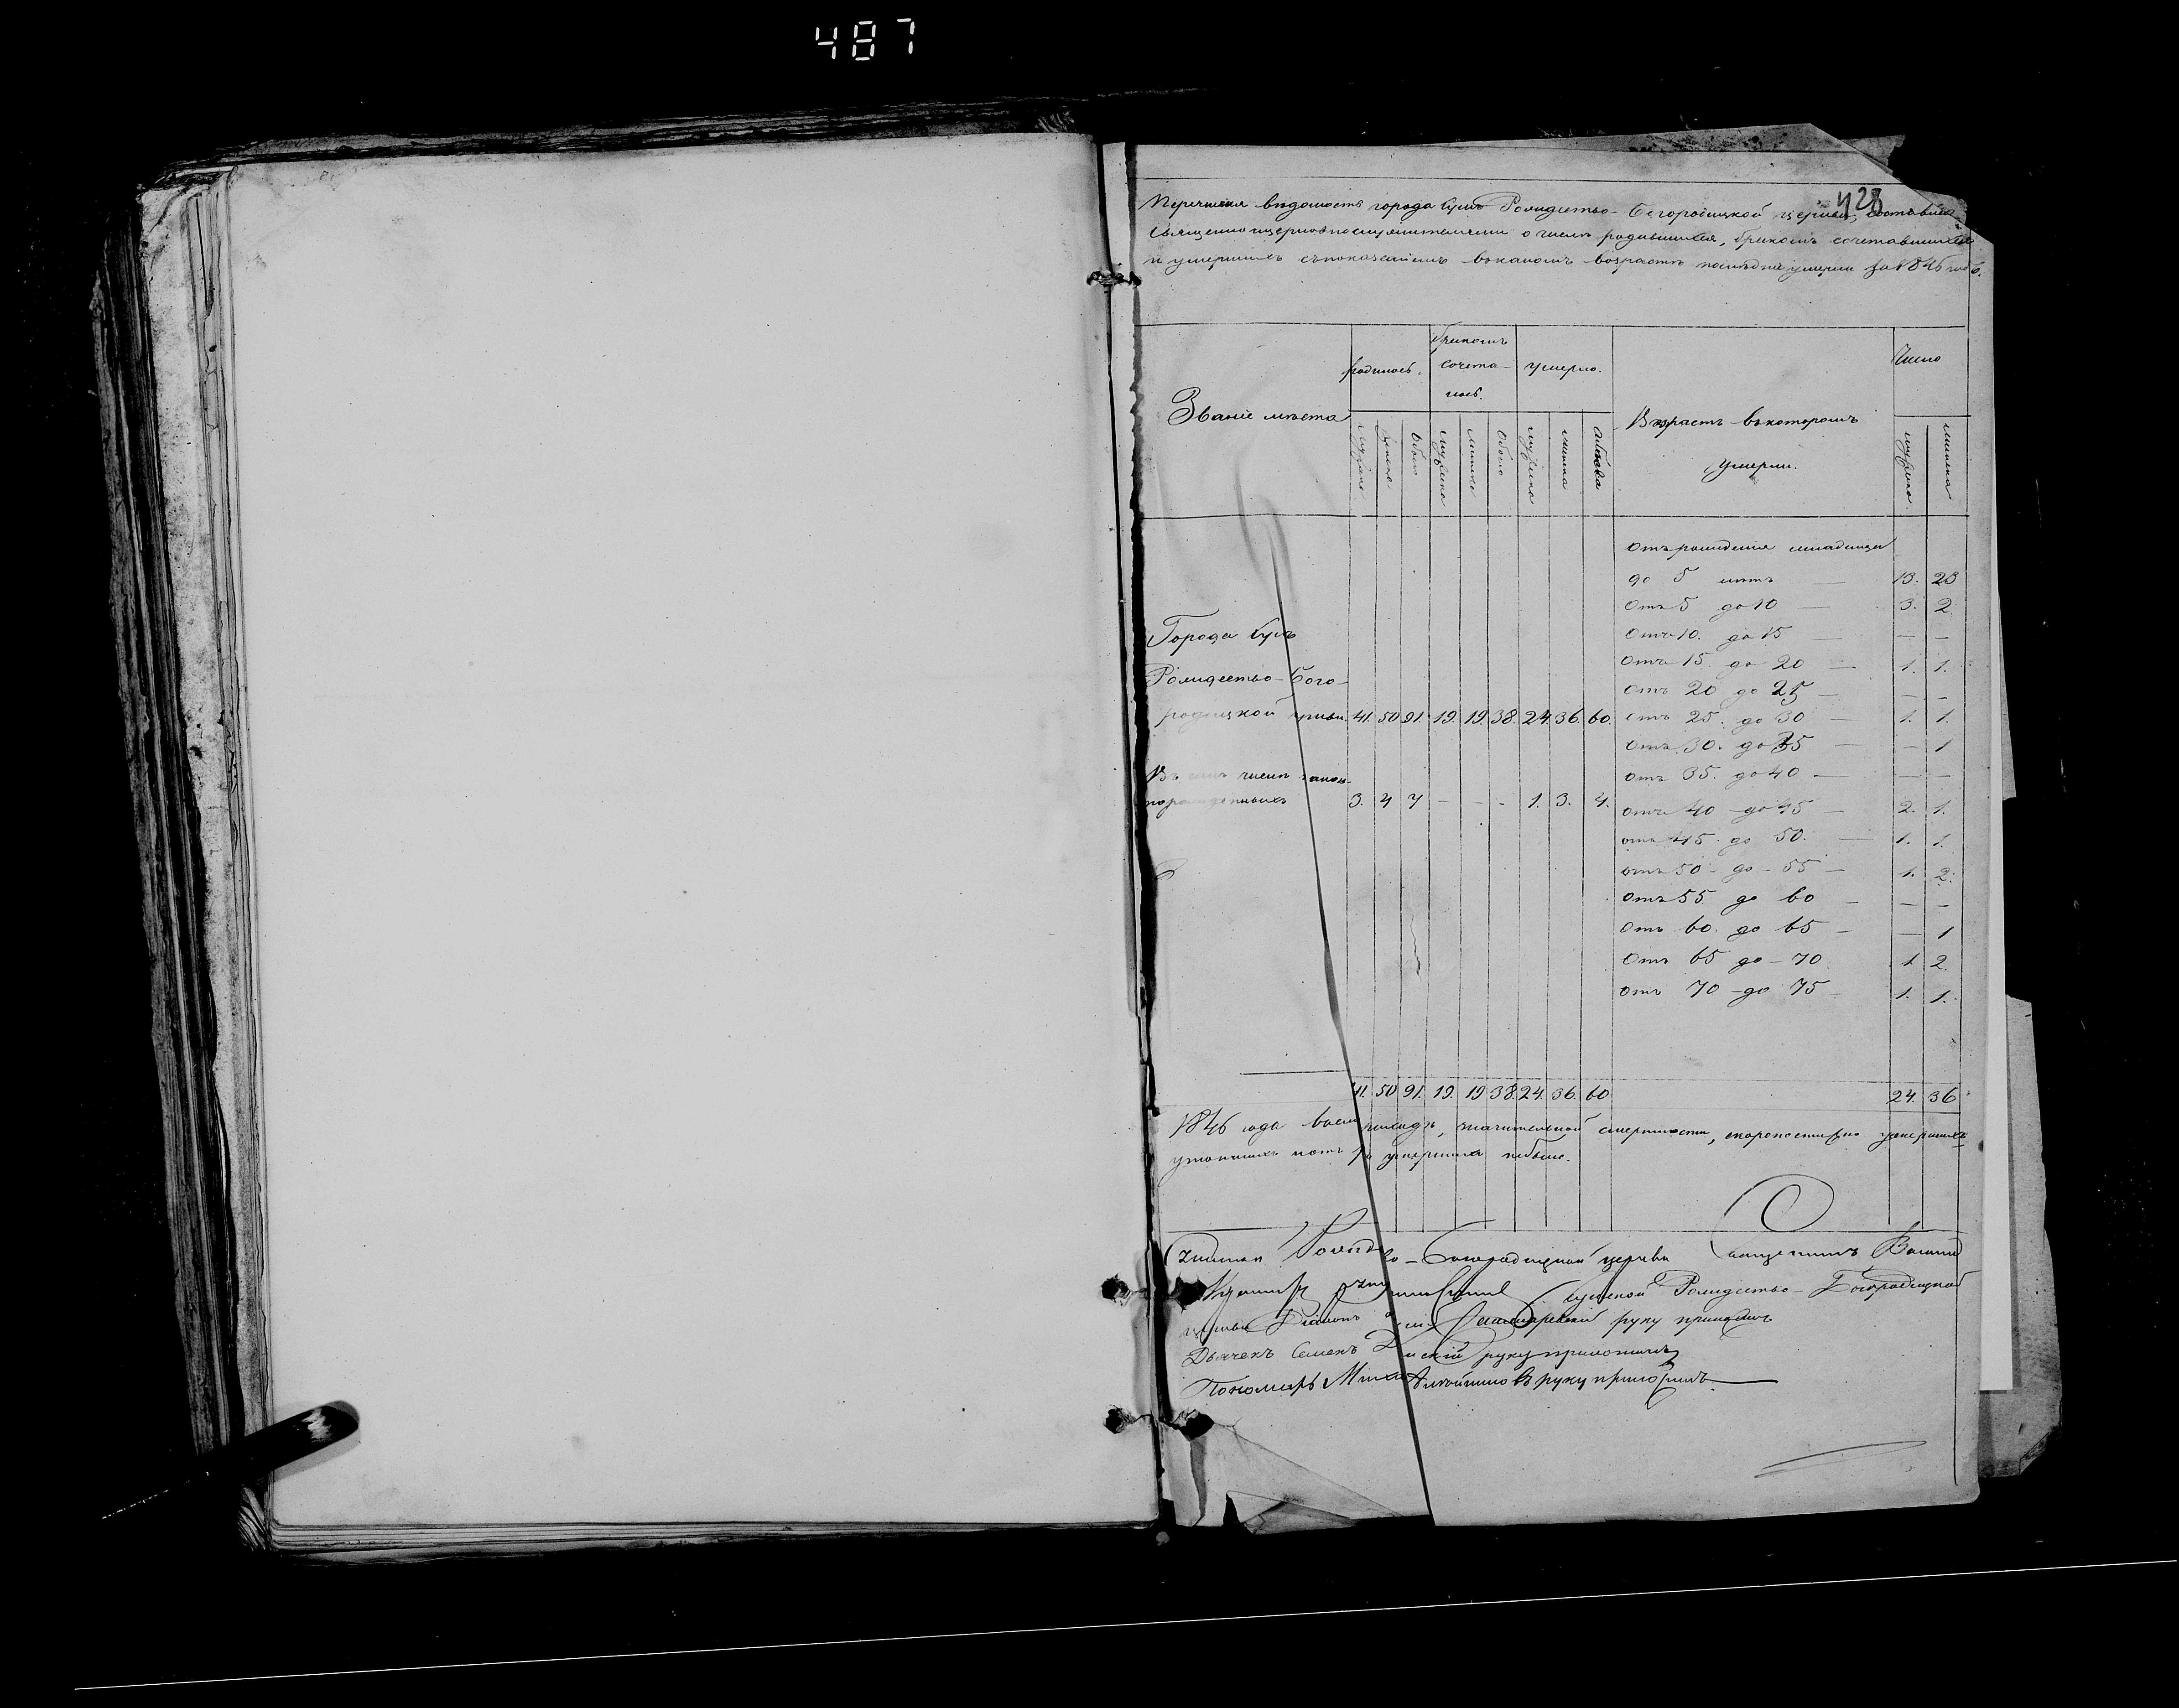 487
428
Перечневая ведомость города Сумъ Рождество-Богородицкой церкви,
Священноцерковнослужителями о числѣ родившихся, бракомъ сочетавшихся
и умершихъ съ показаніемъ въ какомъ возрастѣ послѣдніе умерли за 1846 годъ.
Званіе мѣста
родилось.
бракомъ
сочета-
лось.
умерло.
Возрастъ въ которомъ
умерли.
Число
мужеска женска Обоего мужеска женска Обоего мужеска женска Обоего мужеска женска
Отъ рожденія младенцы
до 5 лѣтъ — 13. 23
Отъ 5 до 10 — 3. 2.
Города Сумъ
Отъ 10. до 15 — — —
Отъ 15. до 20 — 1. 1.
Рождество-Бого-
Отъ 20 до 25 — — —
родицкой церкви 41. 50 91. 19. 19. 38. 24. 36. 60. отъ 25. до 30 — 1. 1.
отъ 30. до 35 — — 1
Въ сихъ числѣ закон-
отъ 35. до 40 — — —
3. 4 7 - - - 1. 3. 4. отъ 40 до 45 — 2. 1.
отъ 45. до 50. — 1. 1.
отъ 50 - до - 55 — 1. 2.
Отъ 55 до 60 — — —
Отъ 60. до 65 — — 1
Отъ 65 до - 70 1 2.
отъ 70 - до 75 1. 1.
41. 50 91. 19. 19 38. 24. 36. 60 24. 36
1846 года значительной смертности, скоропостижно умершихъ
небыло.
Рождество-Богородицкой церкви Священникъ
Сумской Рождество-Богородицкой
церкви Діаконъ руку приложилъ
Дьячекъ Семенъ руку приложилъ
Пономарь руку приложилъ